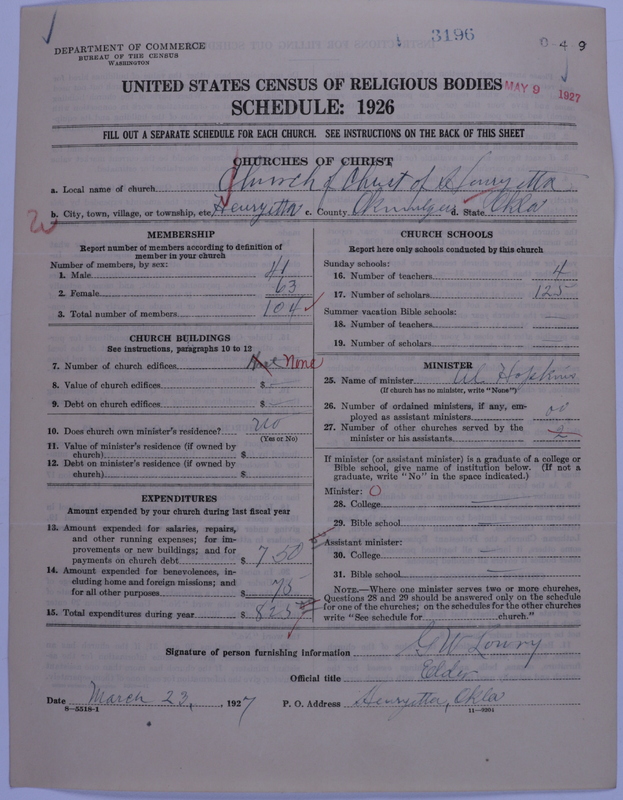 3196
0-4 9
DEPARTMENT OF COMMERCE
BUREAU OF THE CENSUS
WASHINGTON
UNITED STATES CENSUS OF RELIGIOUS BODIES
MAY 9 1927
SCHEDULE: 1926
FILL OUT A SEPARATE SCHEDULE FOR EACH CHURCH. SEE INSTRUCTIONS ON THE BACK OF THIS SHEET
CHURCHES OF CHRIST
a. Local name of church Church of Christ of Henryetta
b. City, town, village, or township, etc. Henryetta c. County Okmulgee d. State Okla
MEMBERSHIP
Report number of members according to definition of
member in your church
Number of members, by sex:
1. Male 41
2. Female 63
3. Total number of members 104
CHURCH BUILDINGS
See instructions, paragraphs 10 to 13
7. Number of church edifices None
8. Value of church edifices $
9. Debt on church edifices $
10. Does church own minister's residence? no
(Yes or No)
11. Value of minister's residence (if owned by
church) $
12. Debt on minister's residence (if owned by
church) $
EXPENDITURES
Amount expended by your church during last fiscal year
13. Amount expended for salaries, repairs,
and other running expenses; for im-
provements or new buildings; and for
payments on church debt $ 750
14. Amount expended for benevolences, in-
cluding home and foreign missions; and
for all other purposes $ 75
15. Total expenditures during year $ 825
CHURCH SCHOOLS
Report here only schools conducted by this church
Sunday schools:
16. Number of teachers 4
17. Number of scholars 125
Summer vacation Bible schools:
18. Number of teachers
19. Number of scholars
MINISTER
25. Name of minister Hopkins
(If church has no minister, write "None")
26. Number of ordained ministers, if any, em-
ployed as assistant ministers
27. Number of other churches served by the
minister or his assistants 2
If minister (or assistant minister) is a graduate of a college or
Bible school, give name of institution below. (If not a
graduate, write "No" in the space indicated.)
Minister: O
28. College
29. Bible school
Assistant minister:
30. College
31. Bible school
NOTE.—Where one minister serves two or more churches,
Questions 28 and 29 should be answered only on the schedule
for one of the churches; on the schedules for the other churches
write "See schedule for church."
Signature of person furnishing information G W Lowry
Official title Elder
Date March 23, 1927 P. O. Address Henryetta, Okla
8—5518-1 11—9201